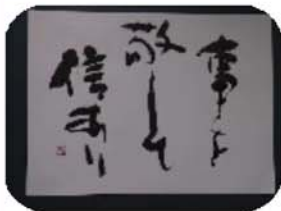 事を
敬して
信あり